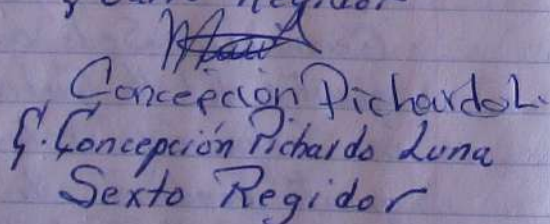 Regidor
Concepción Pichardo L.
C. Concepción Pichardo Luna
Sexto Regidor